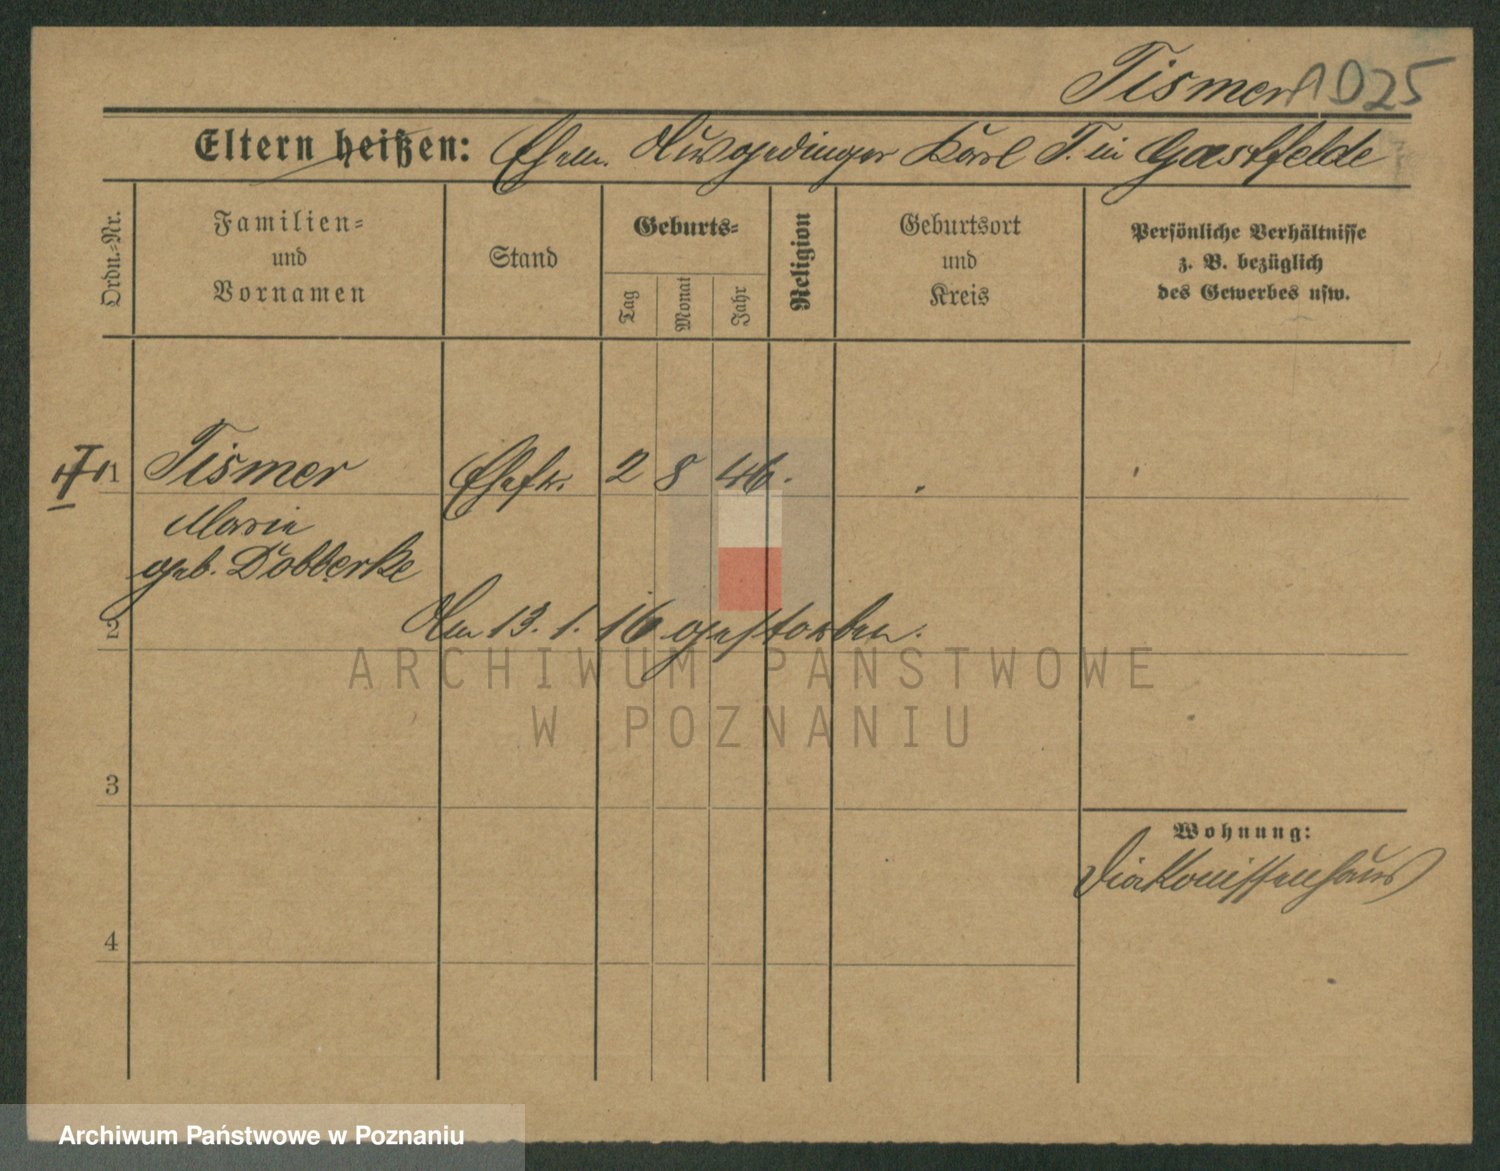 Tismer 1025
Eltern heißen: Ehem. Ausgedinger Karl T. in Gastfelde
Ordn.-Nr.
Familien-
und
Vornamen
Stand
Geburts-
Tag
Monat
Jahr
Religion
Geburtsort
und
Kreis
Persönliche Verhältnisse
z. B. bezüglich
des Gewerbes usw.
1 Tismer Ehefr. 2 8 46.
Marie
geb. Dobberke
2 Am 13. 1. 16 gestorben.
ARCHIWUM PAŃSTWOWE
W POZNANIU
3
Wohnung:
Diakonissenhaus
4
Archiwum Państwowe w Poznaniu